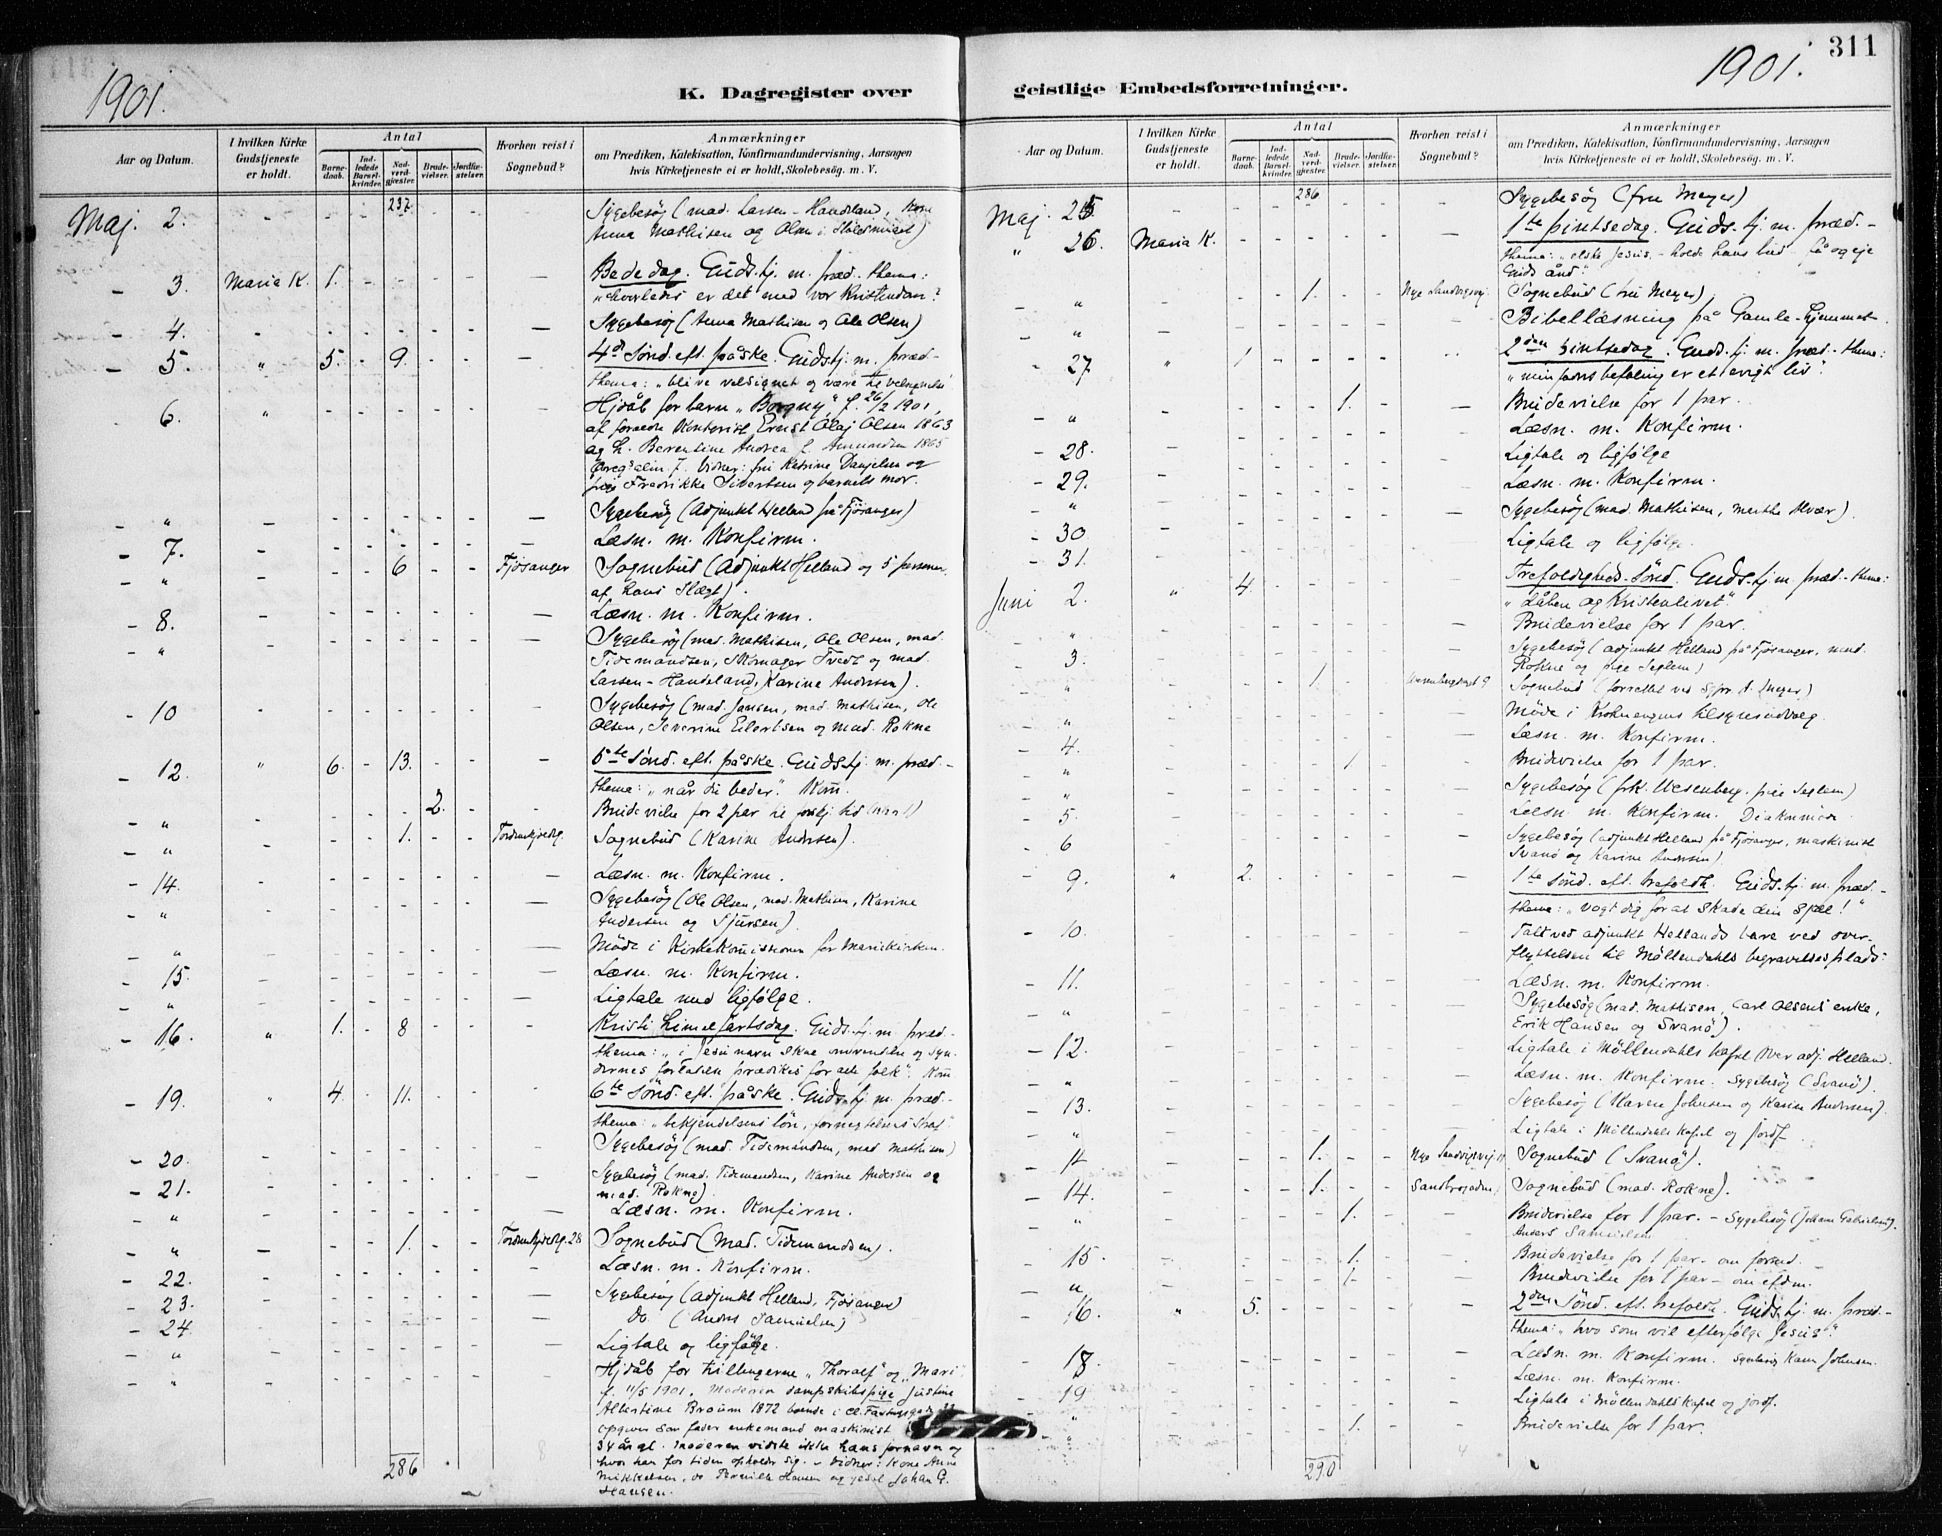 311
1901.
1901.
K. Dagregister over
geistlige Embedsforretninger.
Aar og Datum.
I hvilken Kirke Gudstjeneste er holdt.
Antal
Barnedaab.
Indledede Barselkvinder.
Nadverdgjæster.
Brudevielser.
Jordfæstelser.
Hvorhen reist i Sognebud?
Anmærkninger
om Prædiken, Katekisation, Konfirmandundervisning, Aarsagen
hvis Kirketjeneste ei er holdt, Skolebesøg. m. V.
237
Maj 2. Sygebesøg (mad. Larsen-Handeland, Kone
Anna Mathisen og Olsen i
3. Maria K. 1. Bededag. Gudstj. m. præd. thema:
"hvorledes er det med vor Kristendom?
4. Sygebesøg (Anna Mathisen og Ole Olsen)
5. " 5. 9. 4de Sønd. eft. påske. Gudstj. m. præd-
thema: "blive velsignet og være til velsignelse
6. " Hjdåb for barn "Borgny," f. 26/2 1901,
af Kontorist Ernst Olaj Olsen 1863
og h. Berentine Andrea f. Amundsen 1865
Vidner: fru Katrine Danjelsen og
Fredrikke Sivertsen og barnets mor.
" Sygebesøg (Adjunkt Helland på Fjösanger)
7. Læsn. m. Konfirm.
" 6 Fjösanger Sognebud (Adjunkt Helland og 5 personer
af hans Slægt).
8. Læsn. m. Konfirm.
" Sygebesøg (mad. Mathisen, Ole Olsen, mad.
Tidemandsen, Skomager Tvedt og mad.
Larsen-Handeland, Karine Andersen).
10 Sygebesøg (mad. Jansen, mad. Mathisen, Ole
Olsen, Severine Eilertsen og mad. Rokne
12. " 6. 13. 5te Sønd. eft. påske. Gudstj. m. præd-
thema: "når du beder." Kom.
" 2. Brudevielse for 2 par til forskj. tid
" 1. Sognebud (Karine Andersen).
14. Læsn. m. Konfirm.
" Sygebesøg (Ole Olsen, mad. Mathisen, Karine
Andersen og Sjursen).
" Møde i Kirkekomissionen for Mariekirken.
15. Læsn. m. Konfirm.
" Ligtale med ligfølge.
16. " 1. 8 Kristi himmelfartsdag. Gudstj. m. præd-
thema: "i Jesu navn skal omvendelse og syn-
dernes forladelse prædikes for alle folk". Kom
19. " 4. 11. 6te Sønd. eft. påske. Gudstj. m. præd-
thema: "bekjendelsens løn, fornegtelsens straf."
20. Sygebesøg (mad. Tidemandsen, mad Mathisen)
21. Sygebesøg (mad. Tidemandsen, Karine Andersen og
mad. Rokne)
" Læsn. m. Konfirm.
" 1. Sognebud (mad. Tidemandsen).
22. Læsn. m. Konfirm.
23. Sygebesøg (Adjunkt Helland, Fjösanger)
24. Do (Anders Samuelsen)
" Ligtale og ligfølge.
" Hjdåb for tvillingerne "Thoralf" og "Mari
f. 11/5 1901. Moderen dampskibspige Justine
Albertine Braum 1872 boende i
opgiver som fader enkemand maskinist
34 år gl. moderen vidste ikke hans fornavn og
hvor han for tiden opholder sig. - vidner: Kone Anne
Mikkelsen, do Pernille Hansen og Johan G.
Hansen.
286
Aar og Datum.
I hvilken Kirke Gudstjeneste er holdt.
Antal
Barnedaab.
Indledede Barselkvinder.
Nadverdgjæster.
Brudevielser.
Jordfæstelser.
Hvorhen reist i Sognebud?
Anmærkninger
om Prædiken, Katekisation, Konfirmandundervisning, Aarsagen
hvis Kirketjeneste ei er holdt, Skolebesøg. m. V.
286
Maj 25 Sygebesøg (fru Meyer)
" 26. Maria K. 1ste pintsedag. Gudstj. m. præd.-
thema: "elske Jesus, - holde hans bud - få og eje
Guds ånd"
" 1. Nye Sandvigsvej. Sognebud (fru Meyer)
" Bibellæsning på Gamle-hjemmet.
27 " 1. 2den pintsedag. Gudstj. m. præd.- thema:
"min faders befaling er et evigt liv".
" 1. Brudevielse for 1 par.
28. Læsn. m. Konfirm.
29. Ligtale og ligfølge
" Læsn. m. Konfirm.
30 Sygebesøg (mad. Mathisen,
31. Ligtale og ligfølge.
Juni 2. " 4. Trefoldigheds-sønd. Gudstj. m. præd-thema:
"Dåben og Kristenlivet".
" Brudevielse for 1 par.
3. Sygebesøg (adjunkt Helland på Fjösanger, mad.
Rokne og pige Seglem)
" 1. Sognebud (forrettet ved Spr. A. Meyer)
" Møde i Krohnengens tilsynsudvalg.
4. Læsn. m. Konfirm.
" 1 Brudevielse for 1 par.
" Sygebesøg (frk. Wesenberg, pige Seglem)
5. Læsn. m. Konfirm.
6 Sygebesøg (adjunkt Helland på Fjösanger, maskinist
Svanø og Karine Andersen)
9. " 2. 1ste sønd. eft. trefoldh. Gudstj. m. præd-
thema: "vogt dig for at skade din sjæl!"
10. Talt ved adjunkt Hellands båre ved over-
flyttelsen til Møllendahls begravelsesplads:
11. Læsn. m. Konfirm.
" Sygebesøg (mad. Mathisen, Carl Olsens enke,
Erik Hansen og Svanø).
12. Ligtale i Møllendahls kapel over adj. Helland.
" Læsn. m. Konfirm. Sygebesøg (Svanø).
13. Sygebesøg (Karen Johnsen og Karine Andersen).
" Ligtale i Møllendahls kapel og jordf.
14 1. Nye Sandvigsvej Sognebud (Svanø).
14. 1. Sognebud (mad. Rokne).
" 1. Brudevielse for 1 par. - Sygebesøg (Johan
Anders Samuelsen
15 1. Brudevielse for 1 par - om formd.
" 1. Brudevielse for 1 par - om efdm.
16. " 5. 2den Sønd. eft. trefoldh. Gudstj. m. præd.-
thema: "hvo som vil efterfølge Jesus".
18. Læsn. m. Konfirm. Sygebesøg Karen Johnsen.
19 Læsn. m. Konfirm.
" Ligtale i Møllendahls kapel og jordf.
" 1. Brudevielse for 1 par.
290